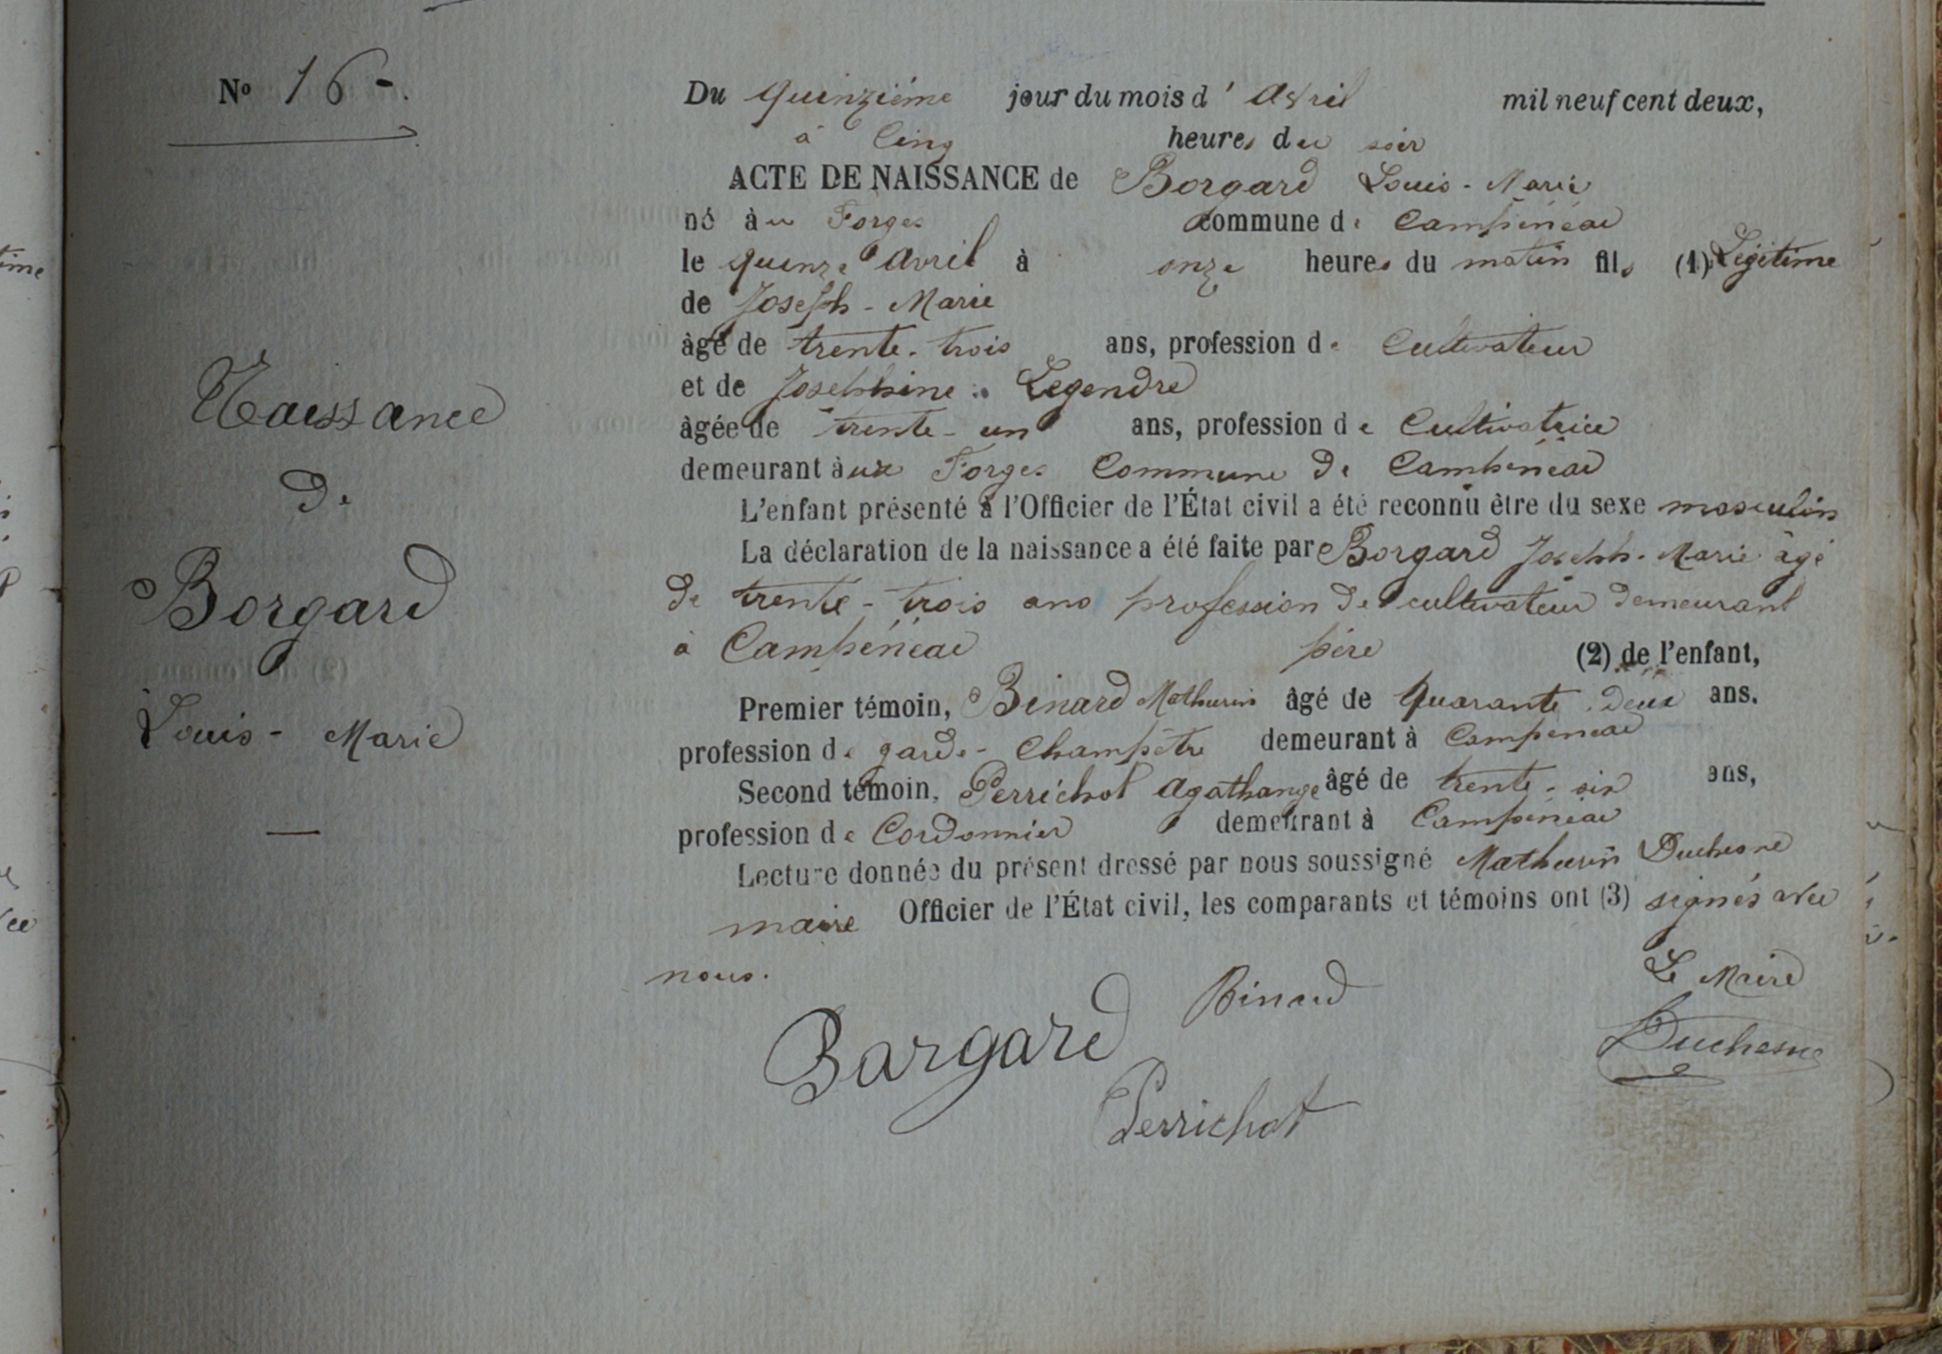 Nº 16 -.
Naissance
De
Borgard
Louis - Marie
Du quinzième jour du mois d' Avril mil neuf cent deux,
à Cinq heures du soir
ACTE DE NAISSANCE de Borgard Louis - Marie
né aux Forges commune de Campénéac
le quinze Avril à onze heures du matin fils (1) Légitime
de Joseph - Marie
âgé de trente - trois ans, profession de Cultivateur
et de Joséphine Legendre
âgée de trente - un ans, profession de Cultivatrice
demeurant aux Forges Commune de Campénéac
L'enfant présenté à l'Officier de l'État civil a été reconnu être du sexe masculin
La déclaration de la naissance a été faite par Borgard Joseph - Marie âgé
de trente - trois ans profession de cultivateur demeurant
à Campénéac père (2) de l'enfant,
Premier témoin, Binard Mathurin âgé de quarante - deux ans.
profession de garde - Champêtre demeurant à Campénéac
Second témoin, Perrichot Agathange âgé de trente - six ans,
profession de Cordonnier demeurant à Campénéac
Lecture donnée du présent dressé par nous soussigné Mathurin Duchesne
maire Officier de l'État civil, les comparants et témoins ont (3) signés avec
nous.
Le Maire
Borgard Binard
Duchesne
Perrichot